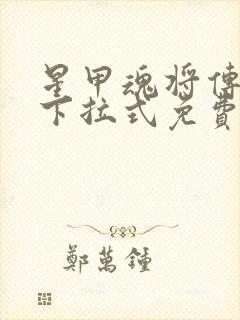 星甲魂将傳
下拉式免費
鄭萬鍾